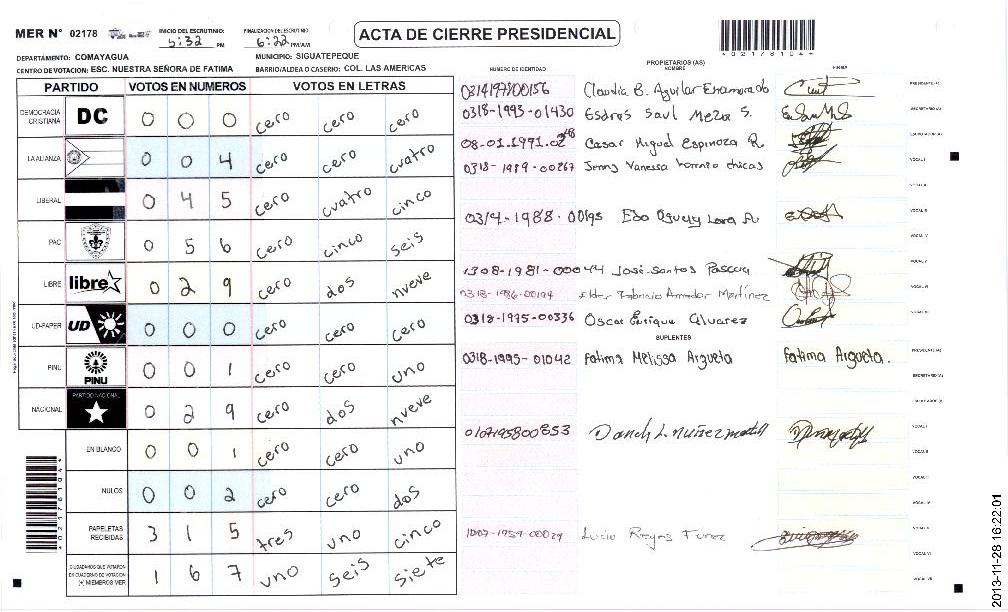 MER N° 02178
INICIO DEL ESCRUTINIO: 5:32 PM
FINALIZACION DEL ESCRUTINIO: 6:22 PM/AM
ACTA DE CIERRE PRESIDENCIAL
4021781044
DEPARTAMENTO: COMAYAGUA MUNICIPIO: SIGUATEPEQUE
CENTRO DE VOTACION: ESC. NUESTRA SEÑORA DE FATIMA BARRIO/ALDEA O CASERIO: COL. LAS AMERICAS
PARTIDO VOTOS EN NUMEROS VOTOS EN LETRAS
DEMOCRACIA CRISTIANA DC 0 0 0 cero cero cero
LA ALIANZA 0 0 4 cero cero cuatro
LIBERAL 0 4 5 cero cuatro cinco
PAC 0 5 6 cero cinco seis
LIBRE libre 0 2 9 cero dos nueve
UD-FAPER UD 0 0 0 cero cero cero
PINU PINU 0 0 1 cero cero uno
NACIONAL PARTIDO NACIONAL 0 2 9 cero dos nueve
EN BLANCO 0 0 1 cero cero uno
NULOS 0 0 2 cero cero dos
PAPELETAS RECIBIDAS 3 1 5 tres uno cinco
CIUDADANOS QUE VOTARON EN CUADERNO DE VOTACION (+) MIEMBROS MER 1 6 7 uno seis siete
NUMERO DE IDENTIDAD PROPIETARIOS (AS) NOMBRE FIRMA
0314197700156 Claudia B. Aguilar Enamorado PRESIDENTE(A)
0318-1993-01430 Esdras Saul Meza S. SECRETARIO(A)
08-01.1971.02 Casar Miguel Espinoza R. ESCRUTADOR(A)
0318-1989-00267 Jenny Vanessa Lorenzo chicas VOCAL I
VOCAL II
0314-1988-00195 VOCAL III
VOCAL IV
1308-1981-00044 José Santos Pascua VOCAL V
0318-1986-00194 Elder Fabricio Amador Martínez VOCAL VI
0318-1975-00336 Oscar Enrique Alvarez VOCAL VII
SUPLENTES
0318-1995-01042 Fatima Melissa Argueta Fatima Argueta. PRESIDENTE(A)
SECRETARIO(A)
ESCRUTADOR(A)
0107195800853 VOCAL I
VOCAL II
VOCAL III
VOCAL IV
1007-1959-00029 Lucio Reyes Funez VOCAL V
VOCAL VI
VOCAL VII
4021781044
2013-11-28 16:22:01